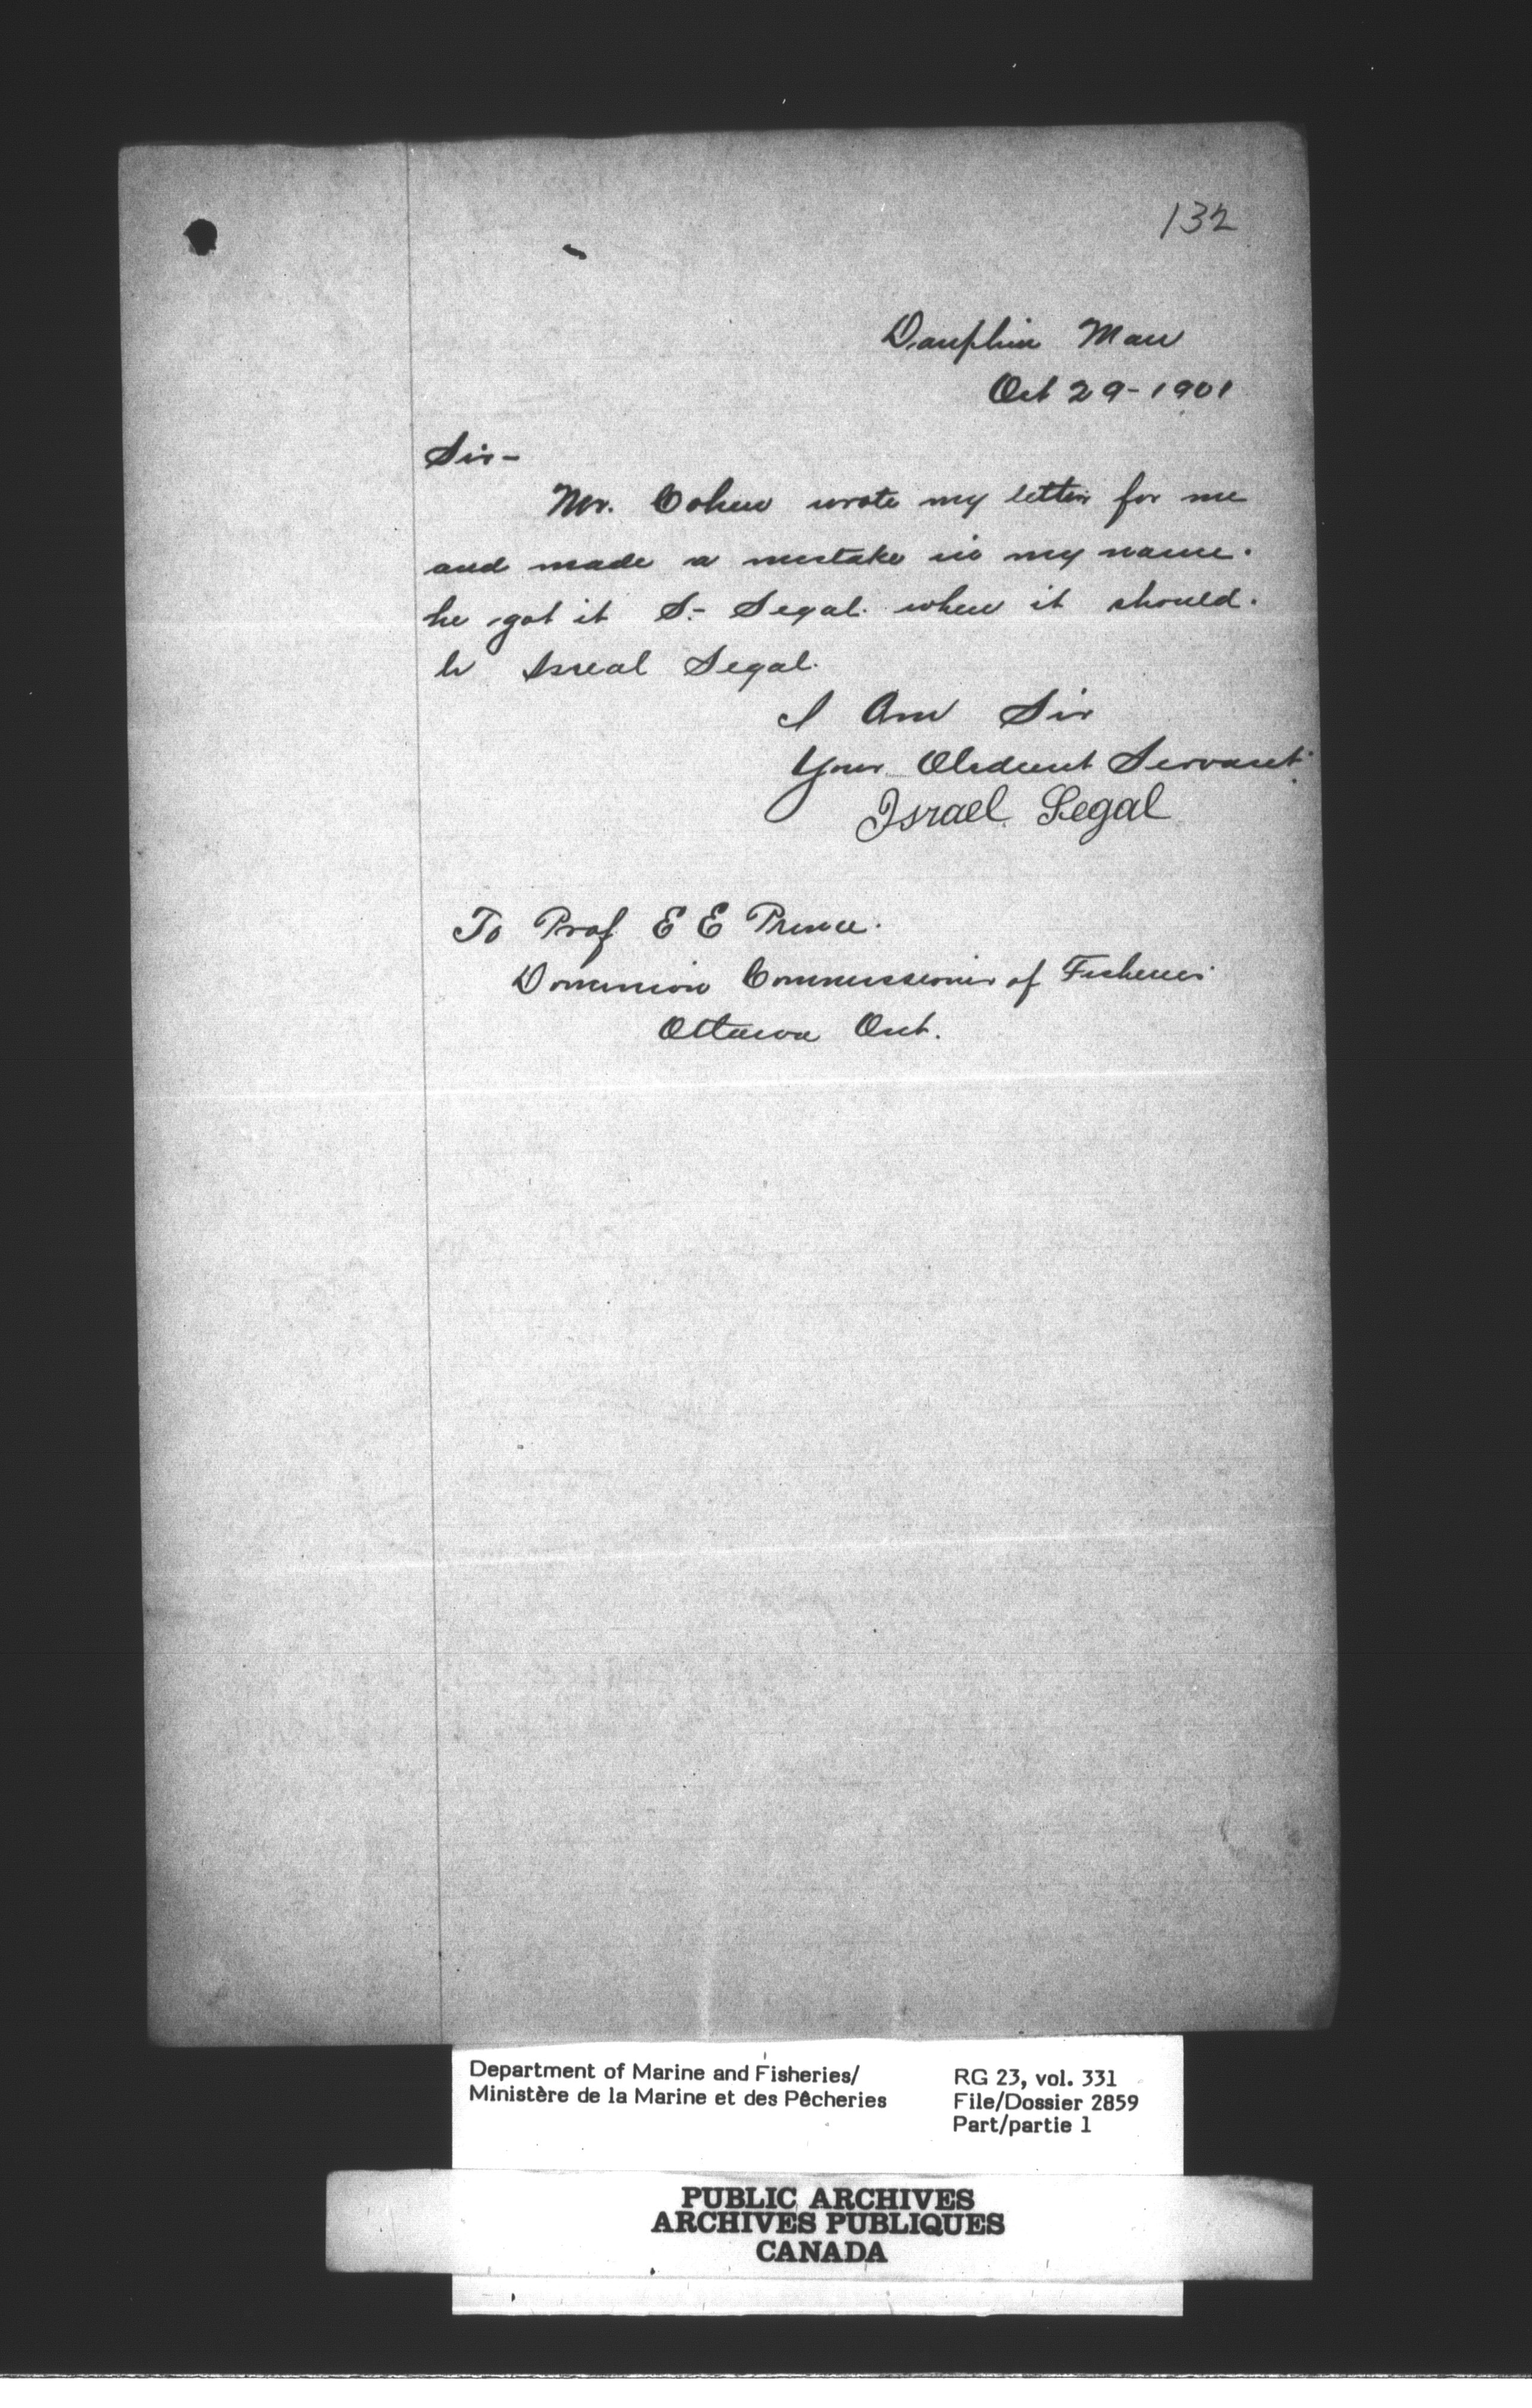 132
Dauphin Man
Oct 29-1901
Sir-
Mr. Cohen wrote my letter for me
and made a mistake in my name.
he got it S.- Segal. when it should.
be Isreal Segal.
I Am Sir
Your Obedient Servant
Israel Segal
To Prof E E Prince.
Dominion Commissioner of Fisheries
Ottawa Ont.
Department of Marine and Fisheries/
Ministère de la Marine et des Pêcheries
RG 23, vol. 331
File/Dossier 2859
Part/partie 1
PUBLIC ARCHIVES
ARCHIVES PUBLIQUES
CANADA